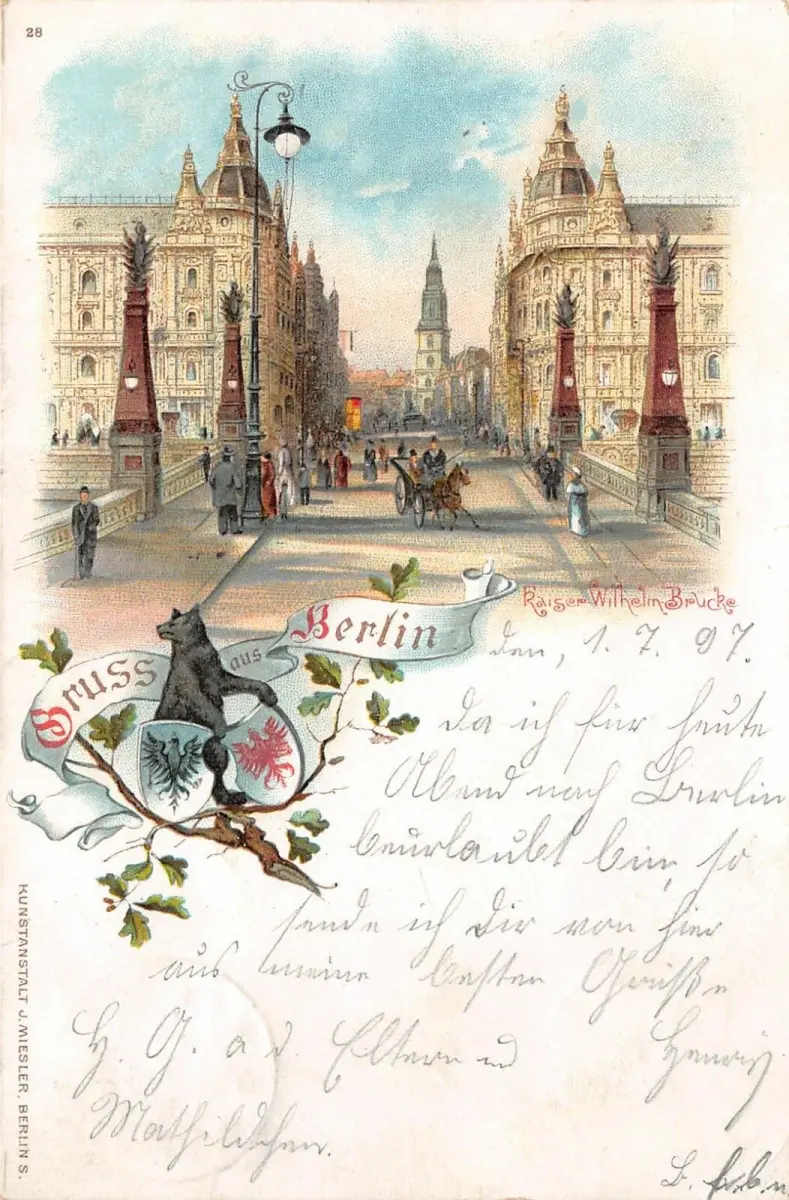 28
Kaiser Wilhelm Brücke
Gruss aus Berlin
den, 1. 7. 97.
Da ich für heute
Abend nach Berlin
beurlaubt bin, so
sende ich Dir von hier
aus meine besten Grüße
H. G. a d. Eltern u
Henry
Mathildchen.
KUNSTANSTALT J. MIESLER, BERLIN S.